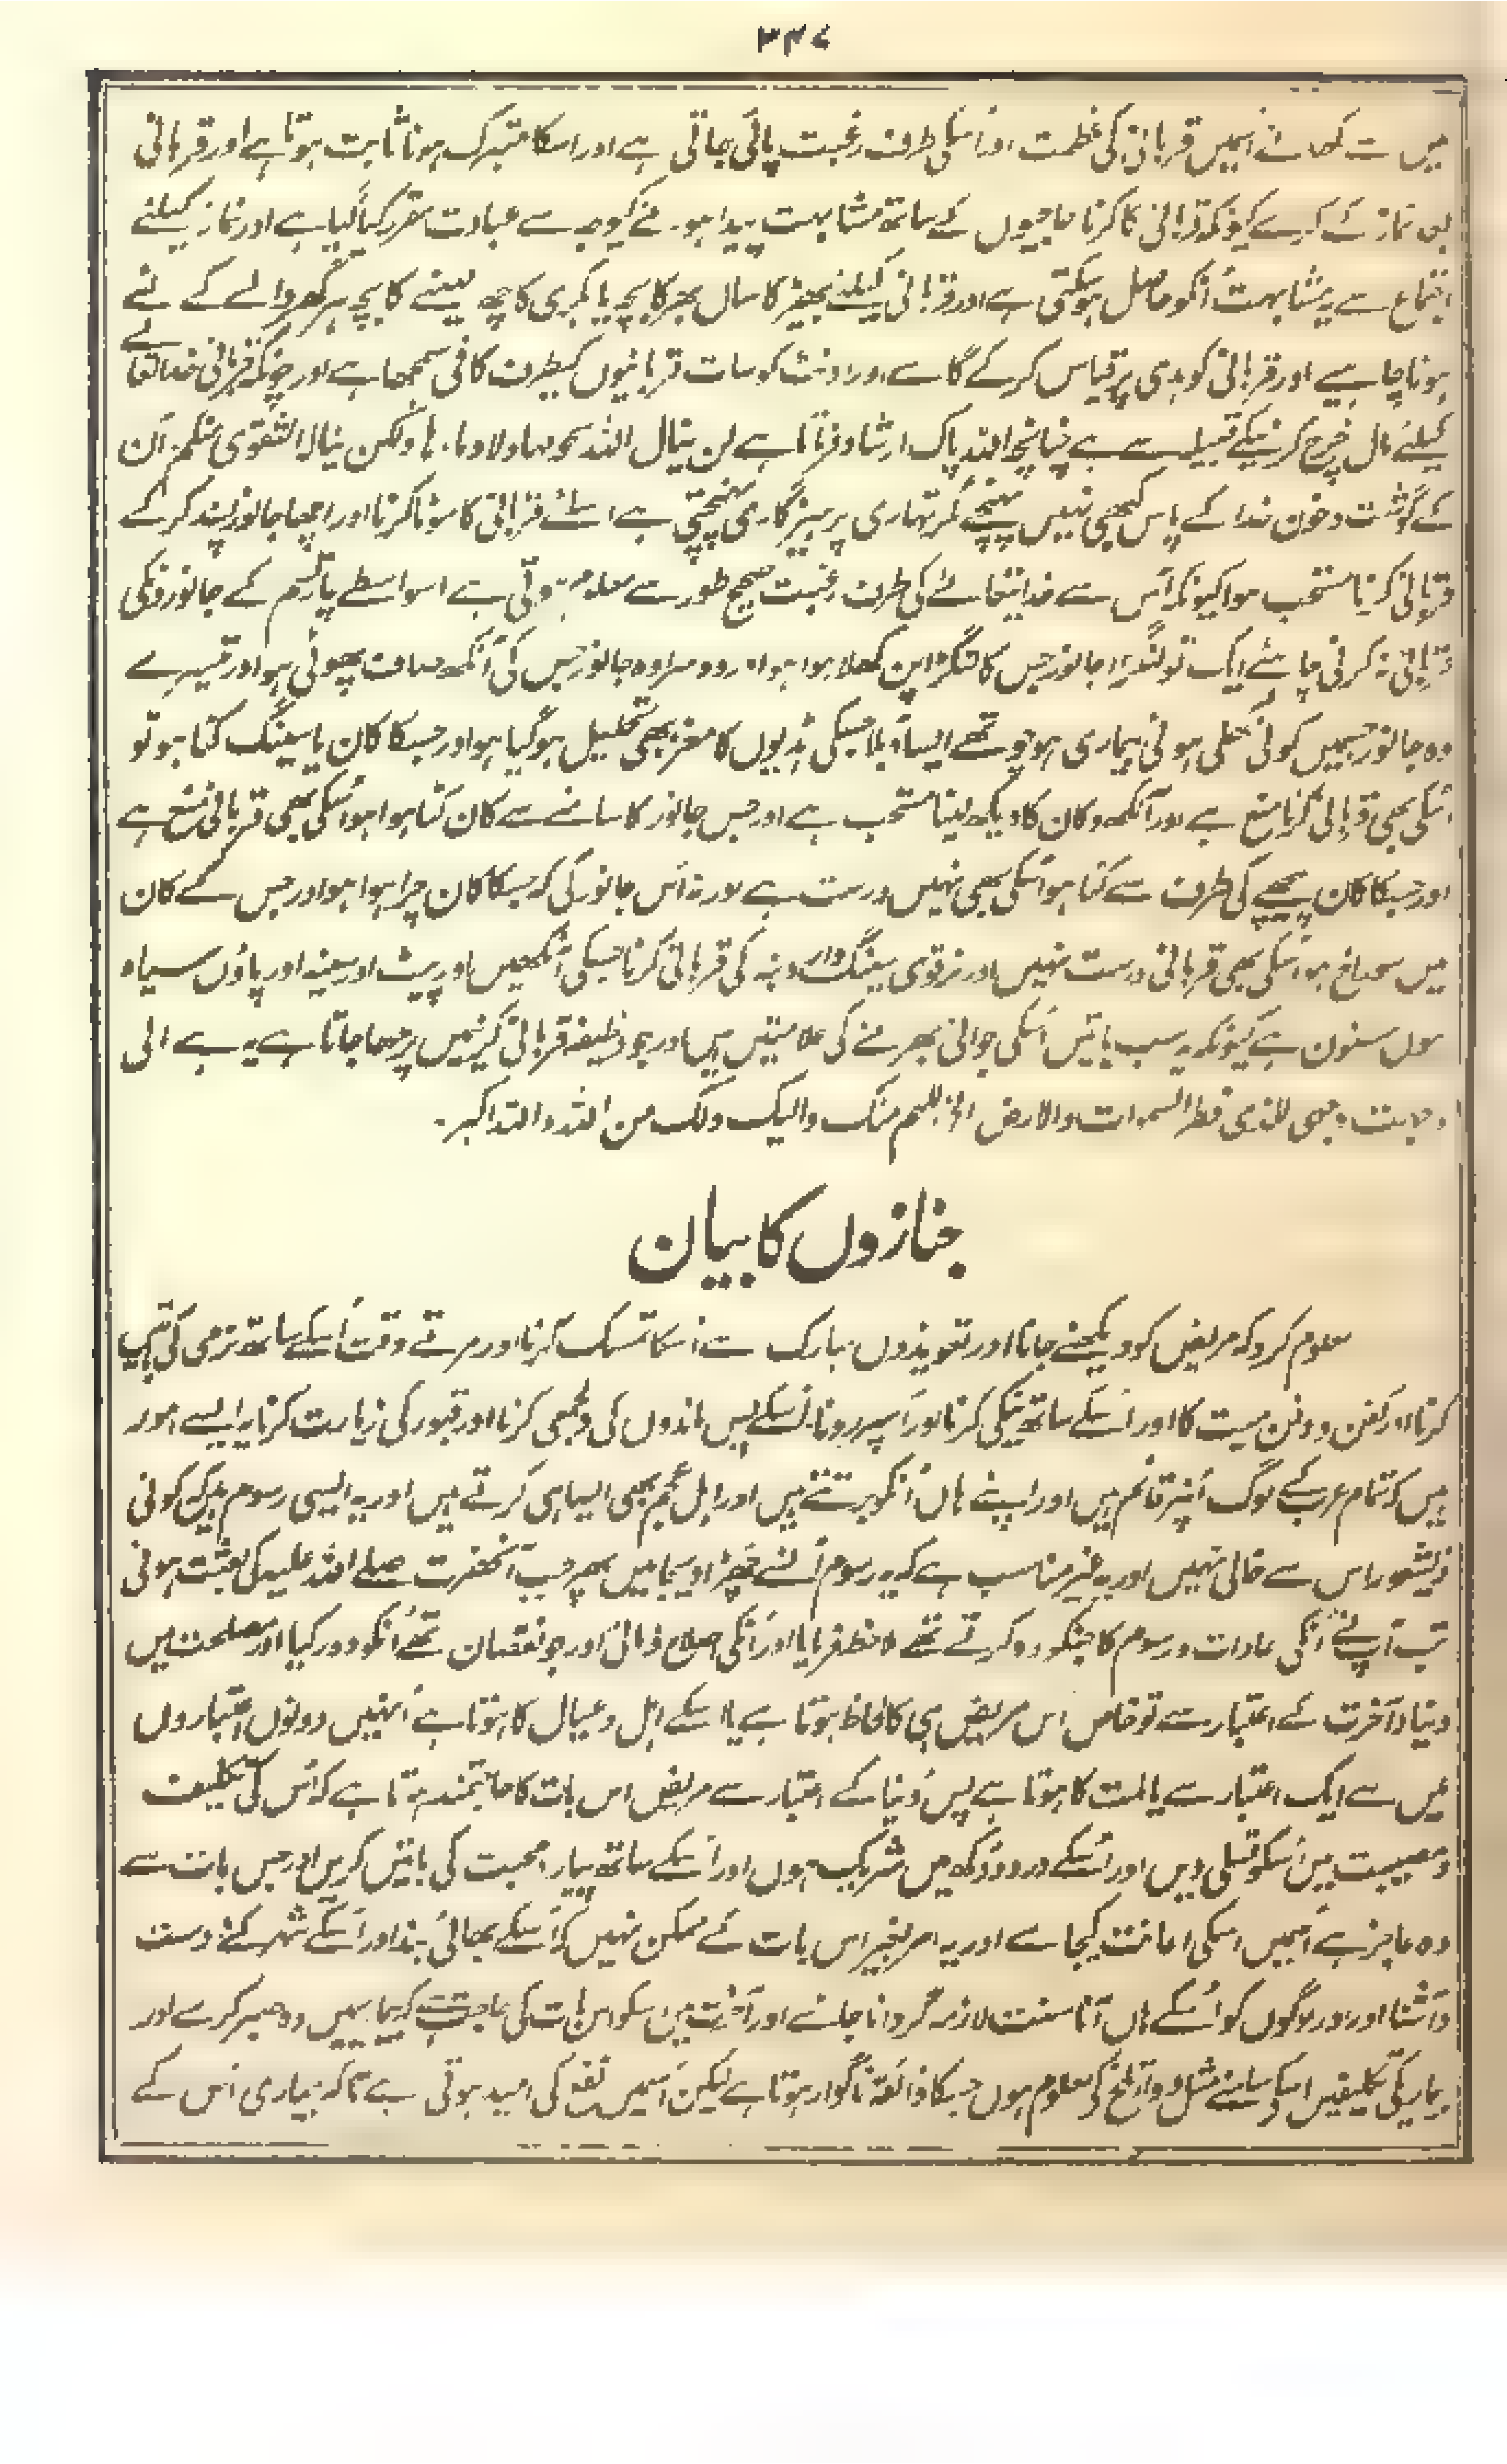 ۳۴۷
میں سے کھائے اسمیں قربانی کی عظمت اور اسکی طرف رغبت پائی جاتی ہے اور اسکا متبرک ہونا ثابت ہوتا ہے اور قربانی
بعد نماز کے کرے کیونکہ قربانی کا کرنا حاجیوں کے ساتھ مشابہت پیدا ہونے کیوجہ سے عبادت مقرر کیا گیا ہے اور نماز کیلئے
اجتماع سے یہ مشابہت انکو حاصل ہو سکتی ہے اور قربانی کیلئے بھیڑ کا سال بھر کا بچہ یا بکری کا چھ مہینے کا بچہ ہر گھر والے کے لئے
ہونا چاہیے اور قربانی کو ہدی پر قیاس کر کے گائے اور اونٹ کو سات قربانیوں کیطرف کافی سمجھا ہے اور چونکہ قربانی خدا تعالے
کیلئے مال خرچ کرنیکے قبیلہ سے ہے چنانچہ اللہ پاک ارشاد فرماتا ہے لن ینال اللہ لحومہا ولا دماءہا ولکن ینالہ التقوی منکم ان
کے گوشت و خون خدا کے پاس کبھی نہیں پہنچتے مگر تمہاری پرہیز گاری پہنچتی ہے اسلئے قربانی کا موٹا کرنا اور اچھا جانور پسند کر کے
قربانی کرنا مستحب ہوا کیونکہ اس سے خدا تعالے کی طرف رغبت صحیح طور سے معلوم ہوتی ہے اسواسطے چار قسم کے جانورونکی
قربانی نہ کرنی چاہئے ایک تو لنگڑا جانور جس کا لنگڑا پن کھلا ہوا ہو اور دوسرا وہ جانور جس کی آنکھ صاف پھوٹی ہو اور تیسرے
وہ جانور جسمیں کوئی کھلی ہوئی بیماری ہو چوتھے ایسا دبلا جسکی ہڈیوں کا مغز بھی تحلیل ہو گیا ہو اور جسکا کان یا سینگ کٹا ہو تو
اسکی بھی قربانی کرنا منع ہے اور آنکھ و کان کا دیکھ لینا مستحب ہے اور جس جانور کا سامنے سے کان کٹا ہوا ہو اُسکی بھی قربانی منع ہے
اور جسکا کان پیچھے کی طرف سے کٹا ہو اُسکی بھی نہیں درست ہے اور نہ اُس جانور کی کہ جسکا کان چرا ہوا ہو اور جس کے کان
میں سوراخ ہو اُسکی بھی قربانی درست نہیں اور نر قوی سینگ دار دنبہ کی قربانی کرنا جسکی آنکھیں اور پیٹ اور سینہ اور پاؤں سیاہ
ہوں مسنون ہے کیونکہ یہ سب باتیں اُسکی جوانی بھرنے کی علامتیں ہیں اور جو وظیفہ قربانی کرنیمیں پڑھا جاتا ہے یہ ہے انی
وجہت وجہی للذی فطر السموات والارض الخ اللہم منک والیک ولک من اللہ واللہ اکبر۔
جنازوں کا بیان
معلوم کرو کہ مریض کو دیکھنے جانا اور تعویذوں مبارک سے اسکا تمسک کرنا اور مرتے وقت اُسکے ساتھ نرمی کی
کرنا اور کفن و دفن میت کا اور اُسکے ساتھ نیکی کرنا اور اُسپر رونا اُسکے پس ماندوں کی دلجمعی کرنا اور قبور کی زیارت کرنا یہ ایسے امور
ہیں کہ تمام عرب کے لوگ اُنپر قائم ہیں اور اپنے ہاں اُنکو برتتے ہیں اور اہل عجم بھی ایسا ہی کرتے ہیں اور یہ ایسی رسوم ہیں کہ کوئی
ذیشعور اس سے خالی نہیں اور یہ غیر مناسب ہے کہ یہ رسوم اُنسے چھڑا دیجائیں پھر جب آنحضرت صلے اللہ علیہ کی بعثت ہوئی
تب آپ نے اُنکی عادات و رسوم کا جنکو وہ کرتے تھے ملاحظہ فرمایا اور اُنکی اصلاح فرمائی اور جو نقصان تھے اُنکو دور کیا اور مصلحت میں
دنیا و آخرت کے اعتبار سے تو خاص اس مریض ہی کا لحاظ ہوتا ہے یا اسکے اہل و عیال کا ہوتا ہے اُنہیں دونوں اعتباروں
میں سے ایک اعتبار سے یا ملت کا ہوتا ہے پس دُنیا کے اعتبار سے مریض اس بات کا حاجتمند ہوتا ہے کہ اُس کی تکلیف
و مصیبت میں اُسکو تسلی دیں اور اُسکے درد و دُکھ میں شریک ہوں اور اُسکے ساتھ پیار و محبت کی باتیں کریں اور جس بات سے
وہ عاجز ہے اُسمیں اسکی اعانت کیجائے اور یہ امر بغیر اس بات کے ممکن نہیں کہ اُسکے بھائی بند اور اُسکے شہر کے دوست
و آشنا اور اور لوگوں کو اُسکے ہاں آنا سنت لازمہ گردانا جائے اور آخرت میں اسکو اس بات کی حاجت ہے کہ بیماریمیں وہ صبر کرے اور
بیماریکی تکلیفیں اسکے سامنے مثل دوا تلخ کی معلوم ہوں جسکا ذائقہ ناگوار ہوتا ہے لیکن اُسمیں نفع کی امید ہوتی ہے تاکہ بیماری اُس کے